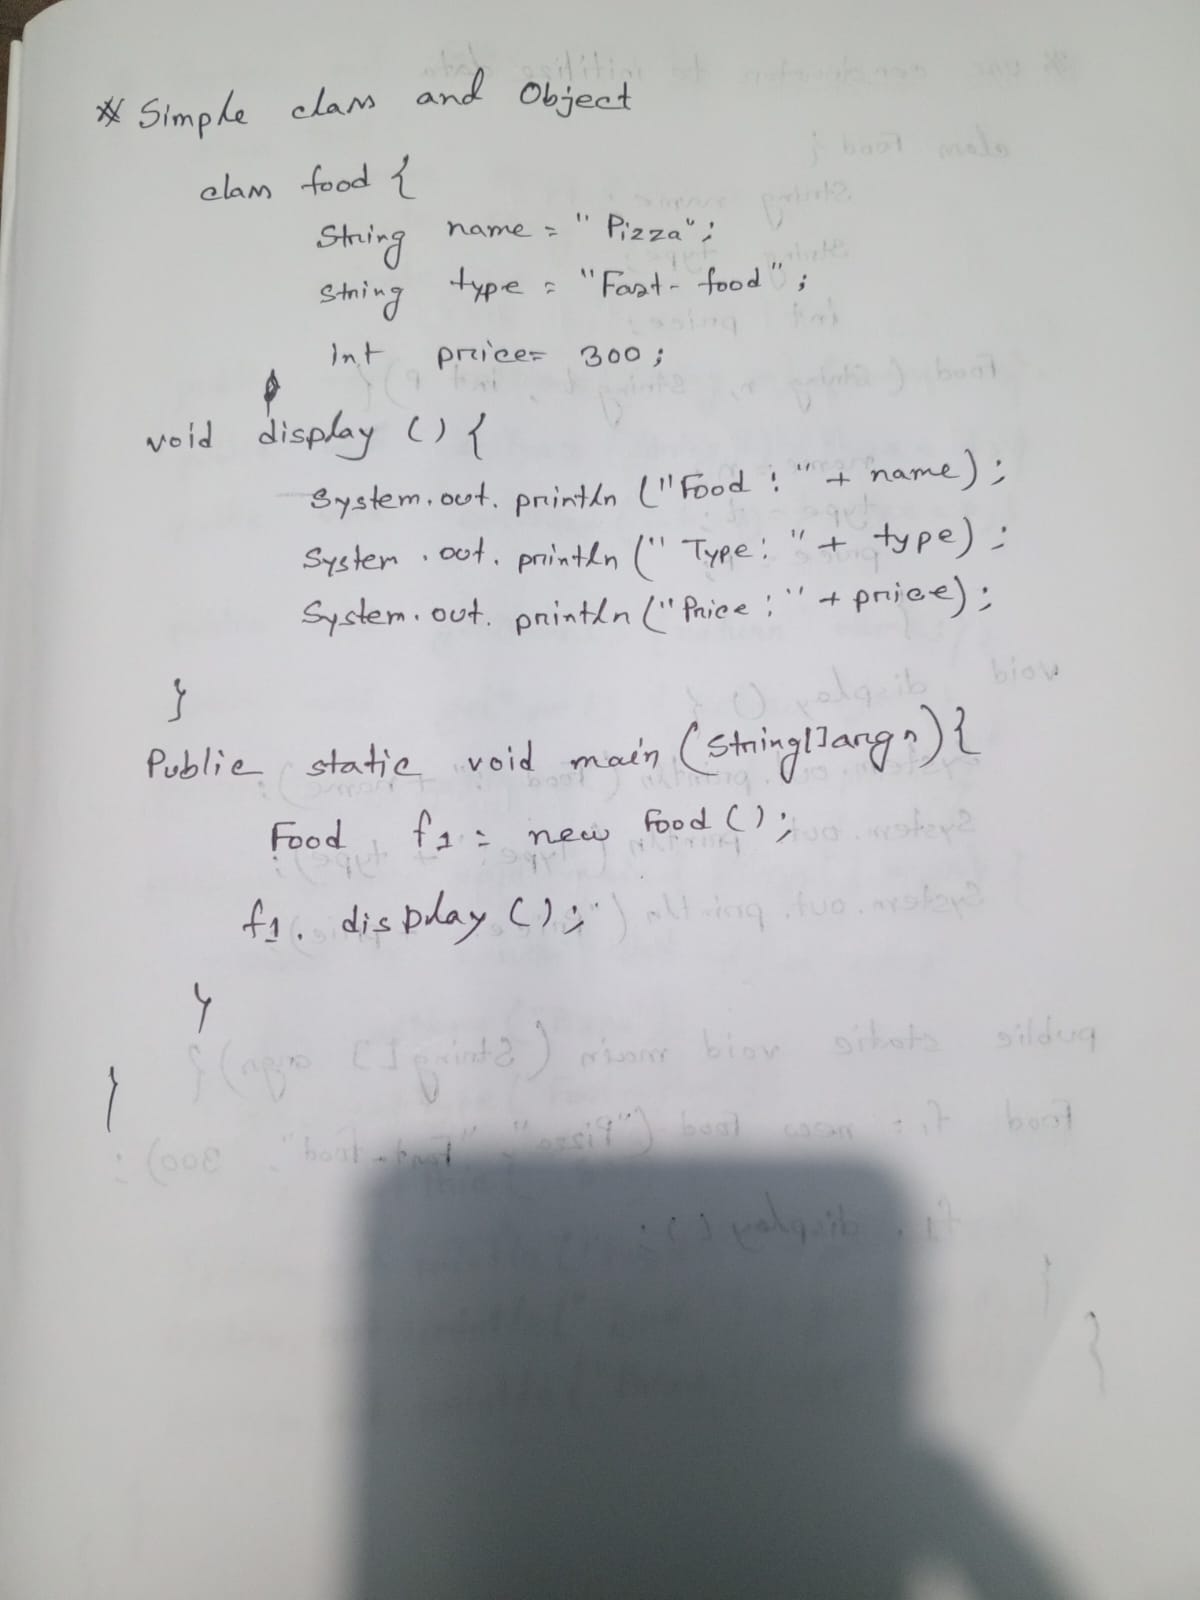 * Simple class and Object
class food {
String name = "Pizza";
String type = "Fast-food";
int price= 300;
void display () {
System.out.println ("Food : " + name);
System.out.println (" Type: " + type);
System.out.println ("Price : " + price);
}
Public static void main (String[]args){
Food f1 = new Food ();
f1. display ();
}
}